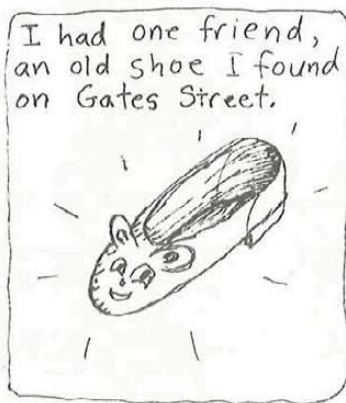 I had one friend,
an old shoe I found
on Gates Street.